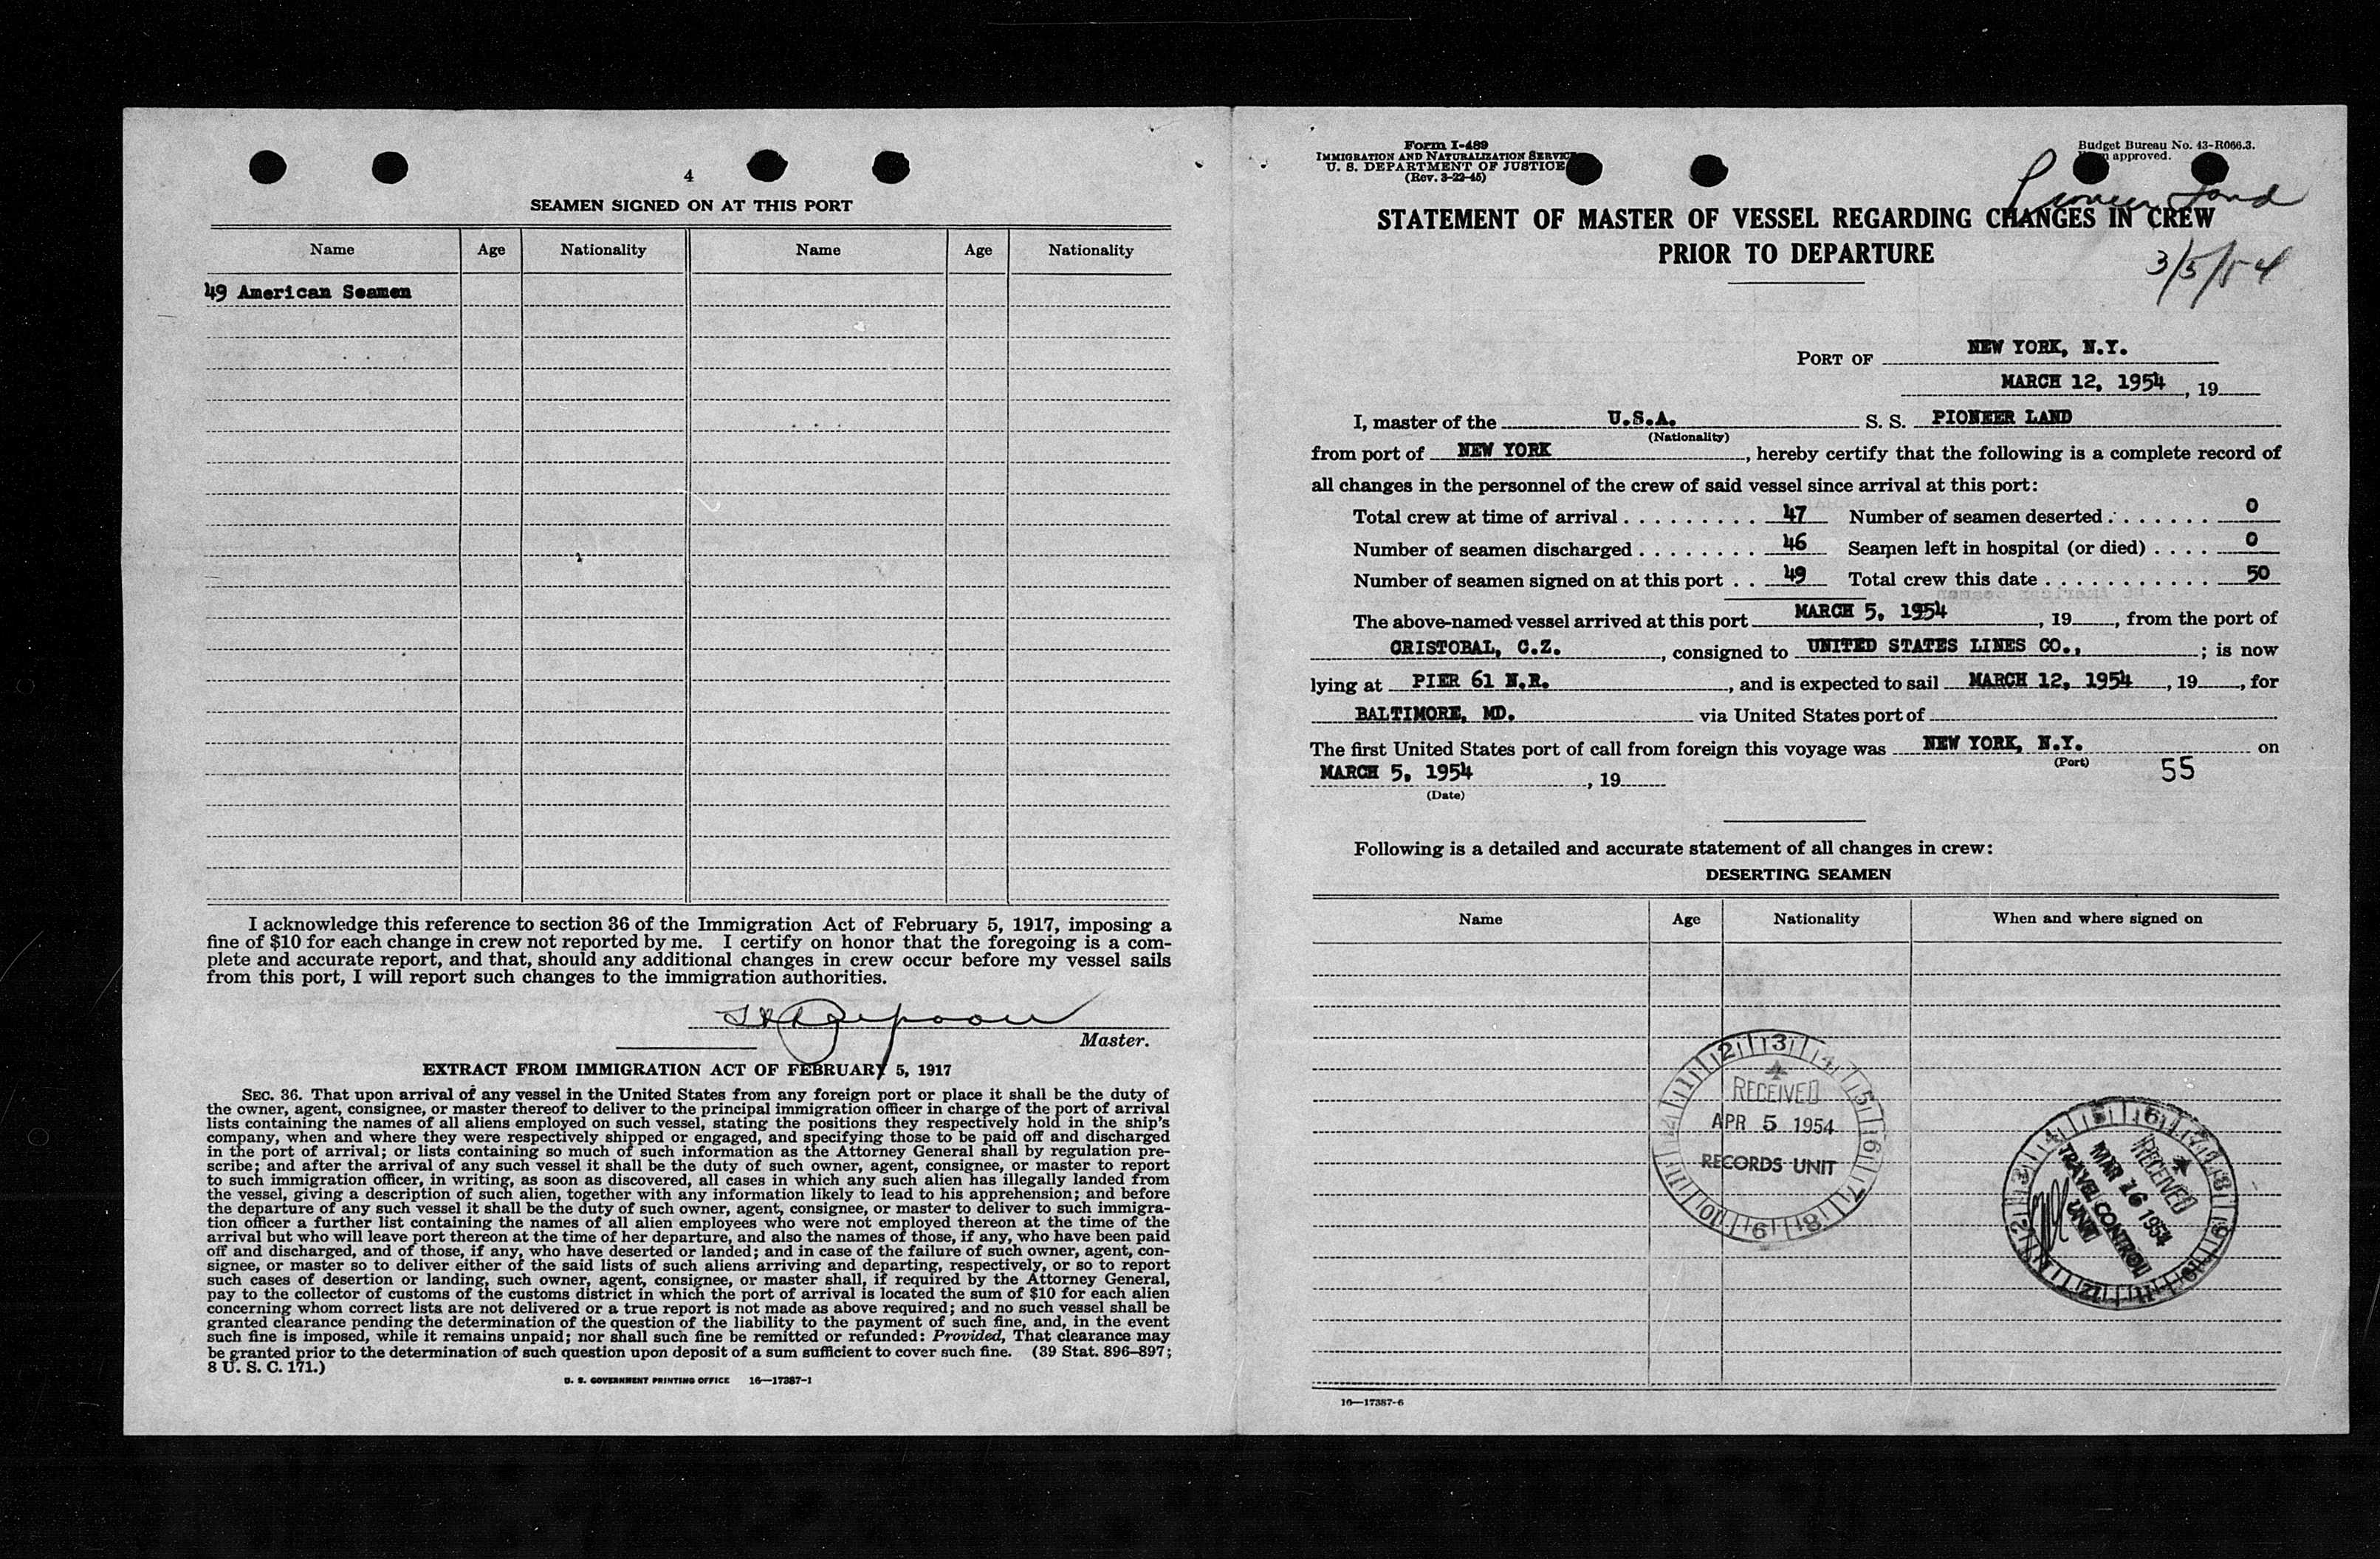 4
SEAMEN SIGNED ON AT THIS PORT
Name Age Nationality Name Age Nationality
49 American Seamen
I acknowledge this reference to section 36 of the Immigration Act of February 5, 1917, imposing a
fine of $10 for each change in crew not reported by me. I certify on honor that the foregoing is a com-
plete and accurate report, and that, should any additional changes in crew occur before my vessel sails
from this port, I will report such changes to the immigration authorities.
Master.
EXTRACT FROM IMMIGRATION ACT OF FEBRUARY 5, 1917
SEC. 36. That upon arrival of any vessel in the United States from any foreign port or place it shall be the duty of
the owner, agent, consignee, or master thereof to deliver to the principal immigration officer in charge of the port of arrival
lists containing the names of all aliens employed on such vessel, stating the positions they respectively hold in the ship's
company, when and where they were respectively shipped or engaged, and specifying those to be paid off and discharged
in the port of arrival; or lists containing so much of such information as the Attorney General shall by regulation pre-
scribe; and after the arrival of any such vessel it shall be the duty of such owner, agent, consignee, or master to report
to such immigration officer, in writing, as soon as discovered, all cases in which any such alien has illegally landed from
the vessel, giving a description of such alien, together with any information likely to lead to his apprehension; and before
the departure of any such vessel it shall be the duty of such owner, agent, consignee, or master to deliver to such immigra-
tion officer a further list containing the names of all alien employees who were not employed thereon at the time of the
arrival but who will leave port thereon at the time of her departure, and also the names of those, if any, who have been paid
off and discharged, and of those, if any, who have deserted or landed; and in case of the failure of such owner, agent, con-
signee, or master so to deliver either of the said lists of such aliens arriving and departing, respectively, or so to report
such cases of desertion or landing, such owner, agent, consignee, or master shall, if required by the Attorney General,
pay to the collector of customs of the customs district in which the port of arrival is located the sum of $10 for each alien
concerning whom correct lists are not delivered or a true report is not made as above required; and no such vessel shall be
granted clearance pending the determination of the question of the liability to the payment of such fine, and, in the event
such fine is imposed, while it remains unpaid; nor shall such fine be remitted or refunded: Provided, That clearance may
be granted prior to the determination of such question upon deposit of a sum sufficient to cover such fine. (39 Stat. 896–897;
8 U. S. C. 171.)
U. S. GOVERNMENT PRINTING OFFICE 16—17387-1
Form I-489
IMMIGRATION AND NATURALIZATION SERVICE
U. S. DEPARTMENT OF JUSTICE
(Rev. 3-22-45)
Budget Bureau No. 43-R066.3.
approved.
Pioneer Land
STATEMENT OF MASTER OF VESSEL REGARDING CHANGES IN CREW
PRIOR TO DEPARTURE
3/5/54
PORT OF NEW YORK, N.Y.
MARCH 12, 1954, 19
I, master of the U.S.A. S. S. PIONEER LAND
(Nationality)
from port of NEW YORK, hereby certify that the following is a complete record of
all changes in the personnel of the crew of said vessel since arrival at this port:
Total crew at time of arrival . . . . . . . . . 47 Number of seamen deserted . . . . . . . 0
Number of seamen discharged . . . . . . . . 46 Seamen left in hospital (or died) . . . . 0
Number of seamen signed on at this port . . 49 Total crew this date . . . . . . . . . . . 50
The above-named vessel arrived at this port MARCH 5, 1954, 19, from the port of
CRISTOBAL, C.Z., consigned to UNITED STATES LINES CO.,; is now
lying at PIER 61 N.R., and is expected to sail MARCH 12, 1954, 19, for
BALTIMORE, MD. via United States port of
The first United States port of call from foreign this voyage was NEW YORK, N.Y. on
(Port) 55
MARCH 5, 1954, 19
(Date)
Following is a detailed and accurate statement of all changes in crew:
DESERTING SEAMEN
Name Age Nationality When and where signed on
RECEIVED
APR 5 1954
RECORDS UNIT
RECEIVED
MAR 16 1954
TRAVEL CONTROL
UNIT
16—17387-6